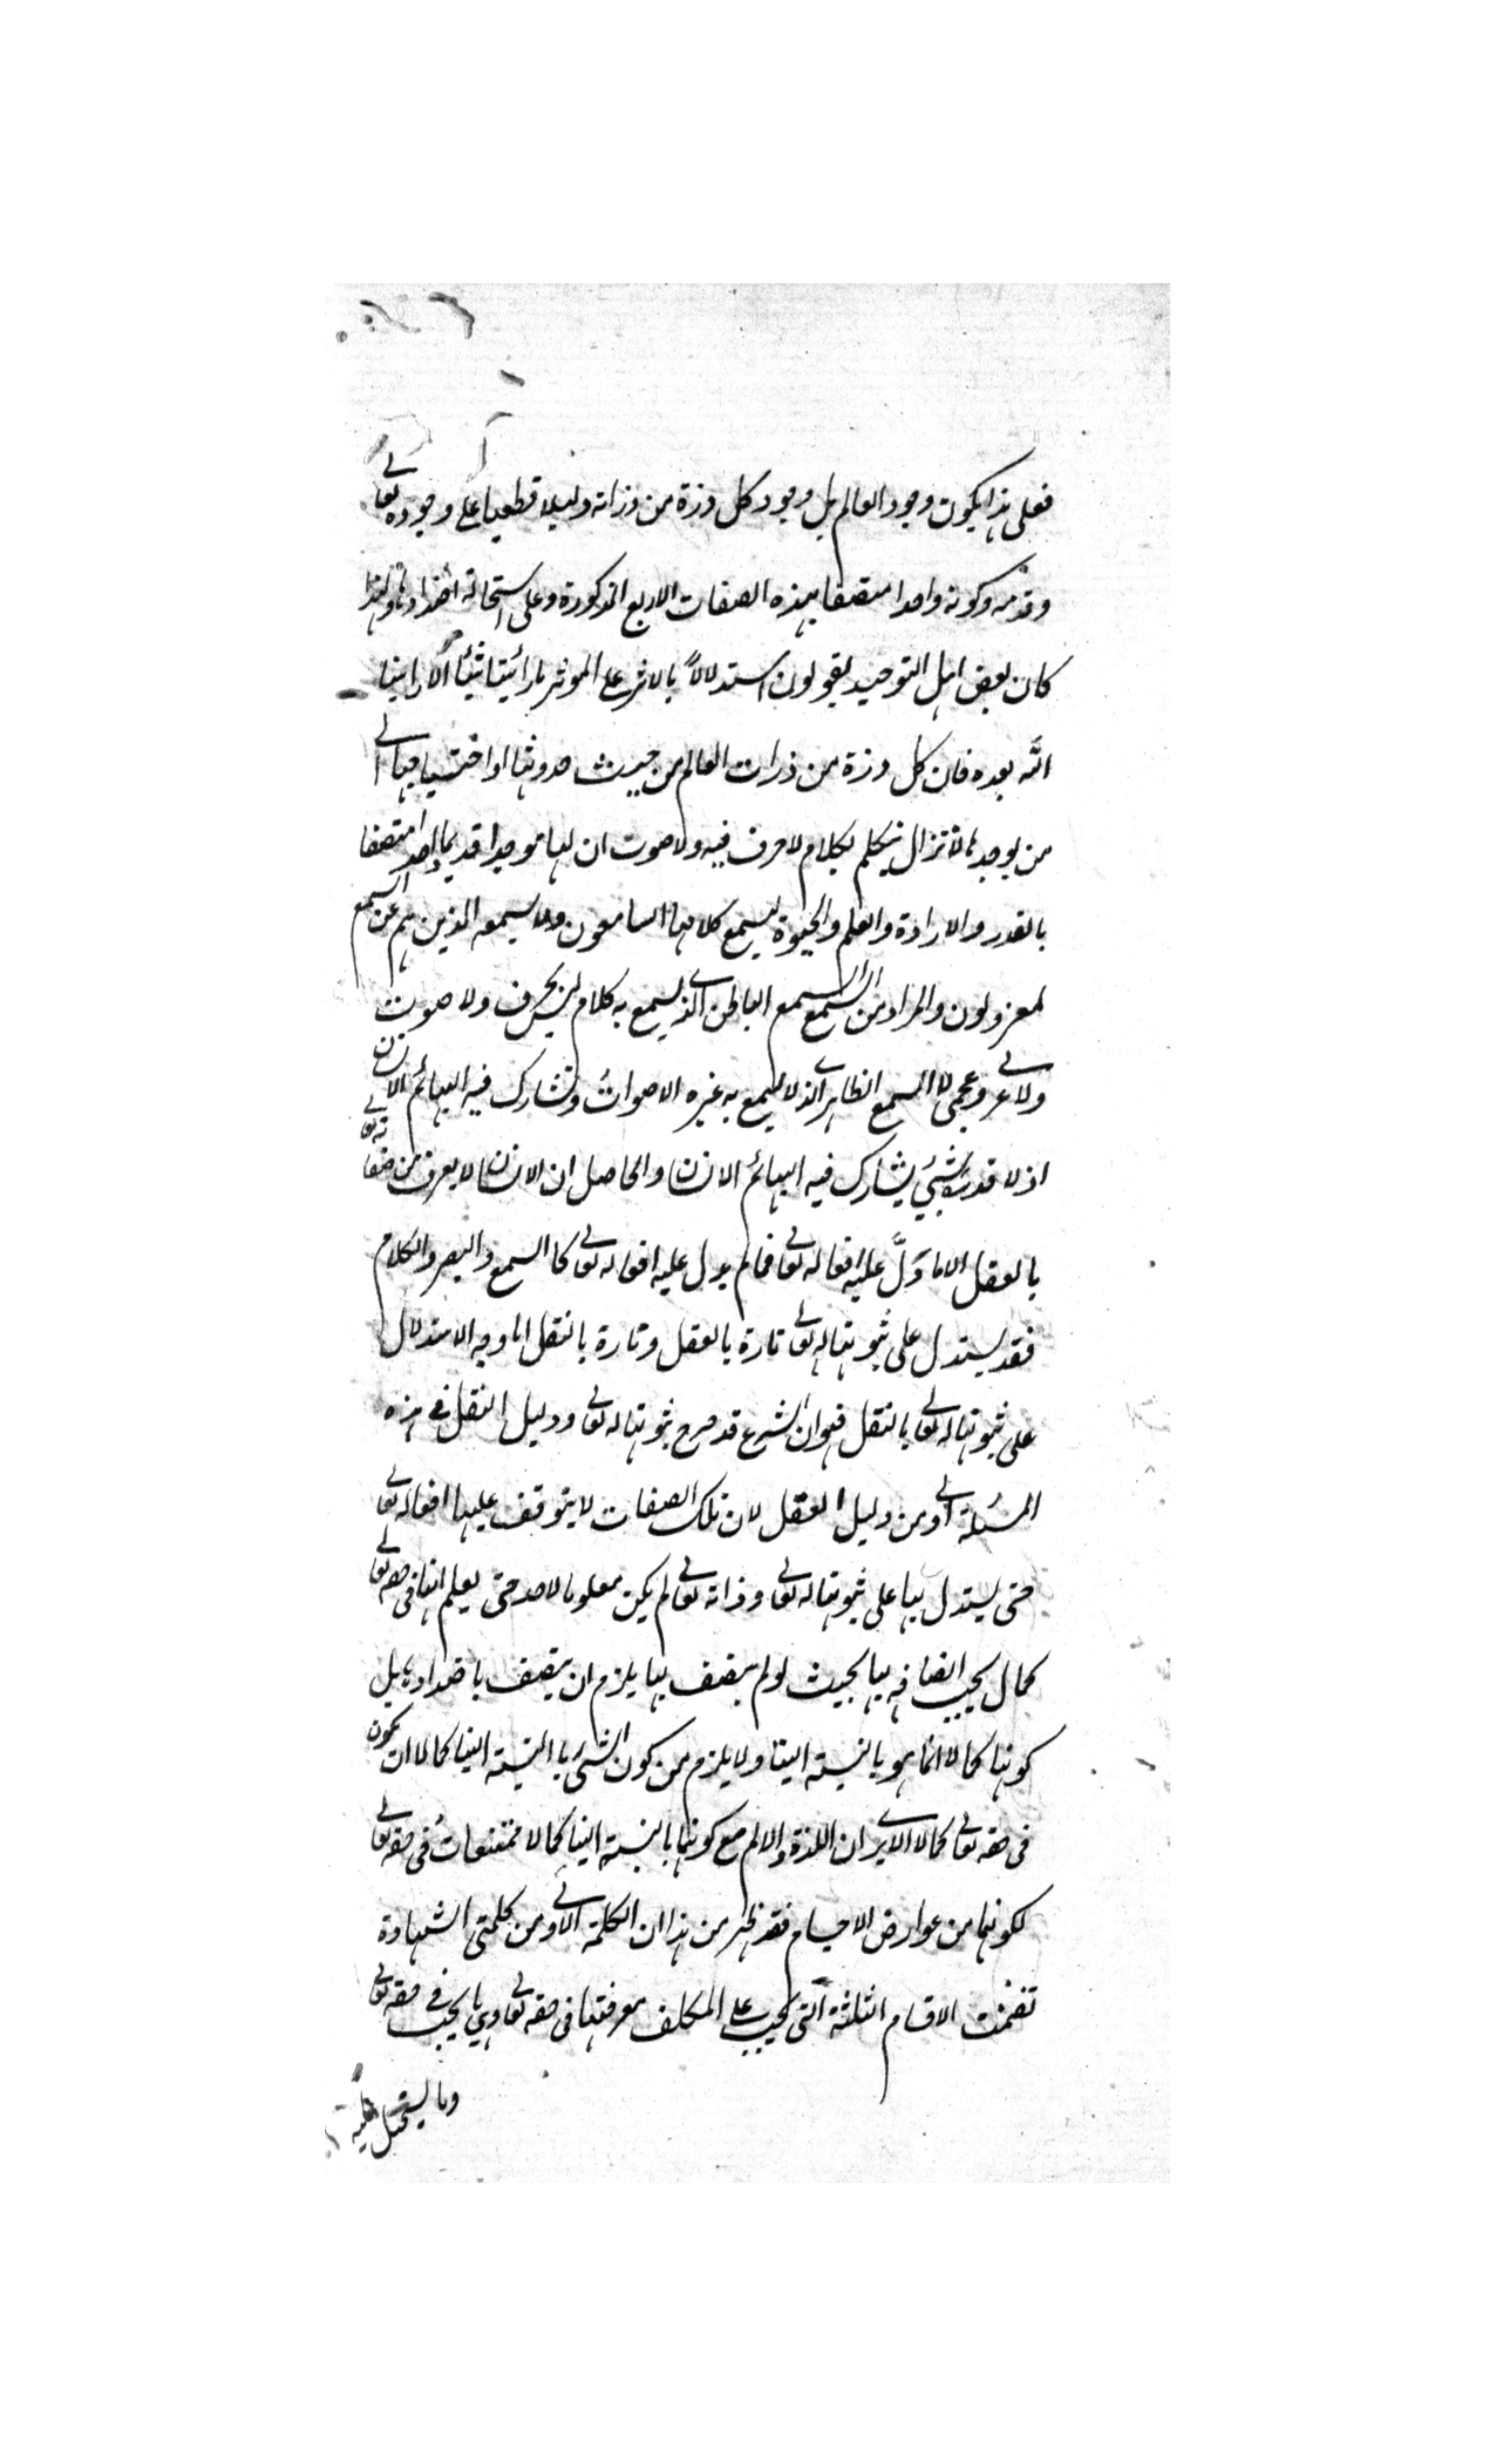 فعلى هذا يكون وجود العالم بل وجود كل ذرة من ذراته دليلا قطعيا على وجوده تعالى
وقدمه وكونه واحدا متصفا بهذه الصفات الاربع المذكورة وعلى استحالة اضدادها ولهذا
كان بعض اهل التوحيد يقولون استدلالاً بالاثر على الموثر ما رأيتنا شيئاً الّا راينا
اللّه بعده فان كل ذرة من ذرات العالم من حيث حدوثها او احتياجها الى
من يوجدها لا تزال يتكلم بكلام لا حرف فيه ولا صوت ان لها موجدا قديما واحدا متصفا
بالقدر والارادة والعلم والحيوة يسمع كلامها السامعون ولا يسمعه الذين هم عن السمع
لمعزولون والمراد من السمع السمع الباطن الذي يسمع به كلام ليس بحرف ولا صوت
ولا عربي وعجمي لا السمع الظاهر الذي لا يسمع به غيره الاصوات وتشارك فيه البهائم الانسان
اذ لا قدر لشئ يشارك فيه البهائم الانسان والحاصل ان الانسان لا يعرف من صفاته تعالى
بالعقل الا ما دَلَّ عليه افعاله تعالى فما لم يدل عليه افعاله تعالى كالسمع والبصر والكلام
فقد يستدل على ثبوتها له تعالى تارة بالعقل وتارة بالنقل اما وجه الاستدلال
على ثبوتها له تعالى بالنقل فهو ان الشرع قد صرح بثبوتها له تعالى ودليل النقل في هذه
المسئلة اولى من دليل العقل لان تلك الصفات لا يتوقف عليها افعاله تعالى
حتى يستدل بها على ثبوتها له تعالى وذاته تعالى لم يكن معلوما لاحد حتى يعلم انها في حقه تعالى
كمال يجب اتصافه بها بحيث لو لم يتصف بها يلزم ان يتصف باضدادها بل
كونها كمالا انما هو بالنسبة الينا ولا يلزم من كون الشئ بالنسبة الينا كمالا ان يكون
في حقه تعالى كمالا الا يرى ان اللذة والالم مع كونهما بالنسبة الينا كمالا ممتنعات في حقه تعالى
لكونهما من عوارض الاجسام فقد ظهر من هذا ان الكلمة الاولى من كلمتي الشهادة
تضمنت الاقسام الثلثة التي يجب على المكلف معرفتها في حقه تعالى وهي ما يجب في حقه تعالى
وما يستحيل عليه